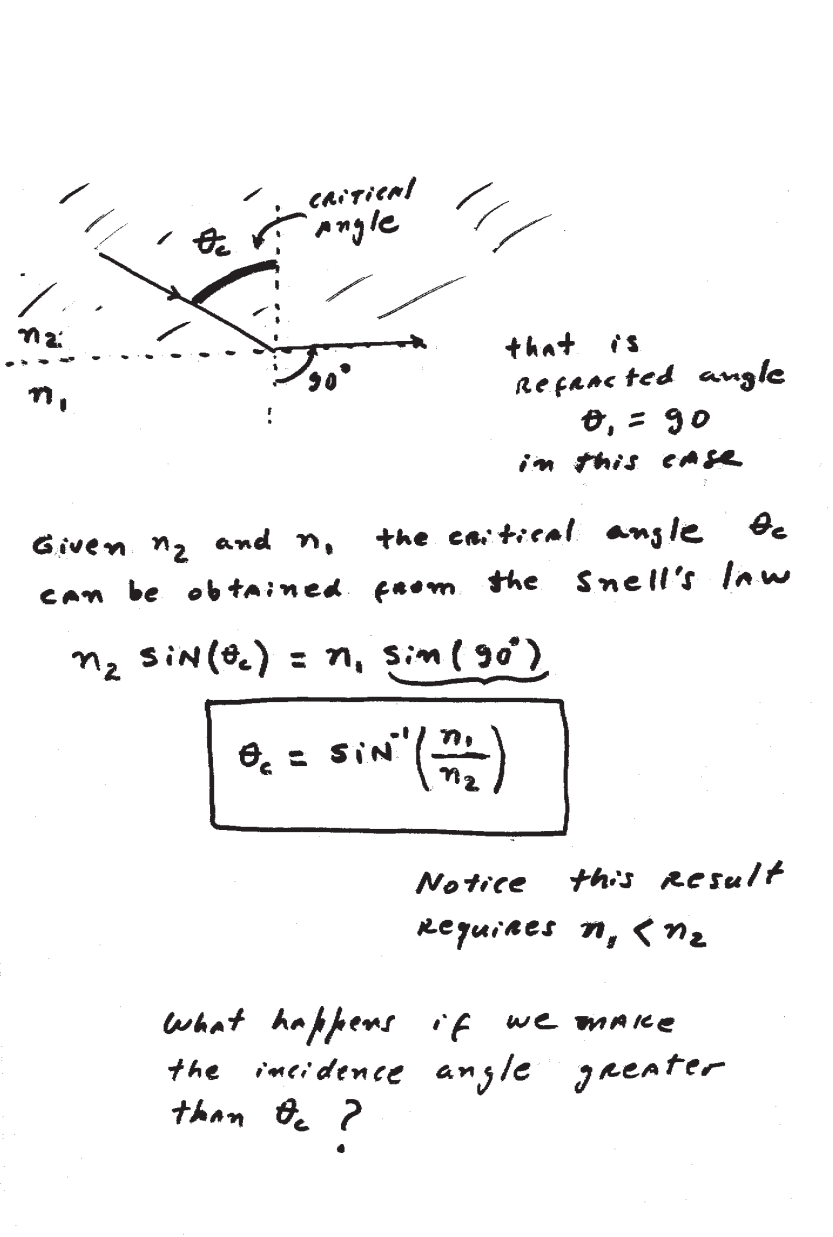 critical
angle
θc
n2
n1
90°
that is
refracted angle
θ1 = 90
in this case
Given n2 and n1 the critical angle θc
can be obtained from the Snell's law
n2 sin(θc) = n1 sin(90°)
θc = sin⁻¹(n1/n2)
Notice this result
requires n1 < n2
What happens if we make
the incidence angle greater
than θc ?